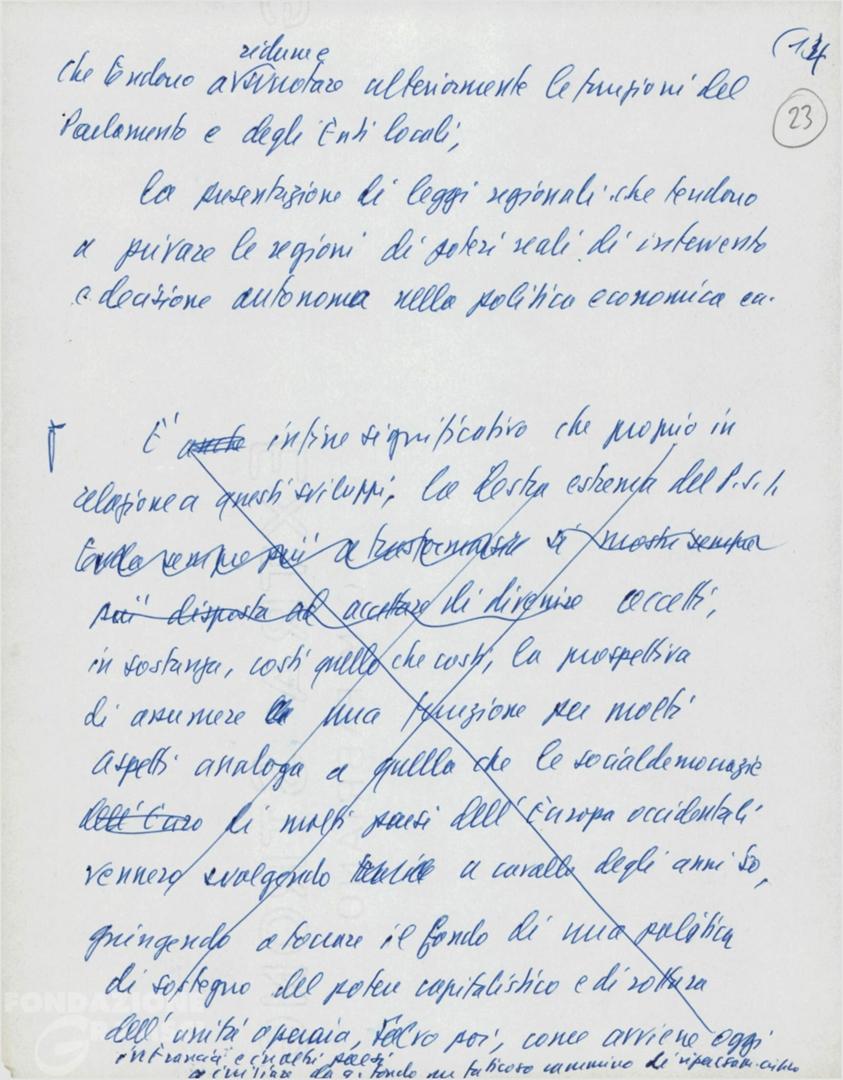 (14
23
ridurre
che tendono a svuotare ulteriormente le funzioni del
Parlamento e degli Enti locali;
la presentazione di leggi regionali che tendono
a privare le regioni di poteri reali di intervento
e decisione autonoma nella politica economica ecc.
E' anche infine significativo che proprio in
relazione a questi sviluppi, la destra estrema del P.S.I.
tenda sempre più a trasformarsi si mostri sempre
più disposta ad accettare di divenire accetti,
in sostanza, costi quello che costi, la prospettiva
di assumere una funzione per molti
aspetti analoga a quella che le socialdemocrazie
dell'Euro di molti paesi dell'Europa occidentali
vennero svolgendo a cavallo degli anni 50,
giungendo a toccare il fondo di una politica
di sostegno del potere capitalistico e di rottura
dell'unità operaia, salvo poi, come avviene oggi
in Francia e in altri paesi
a iniziare da quel fondo un faticoso cammino di
FONDAZIONE
GRAMSCI